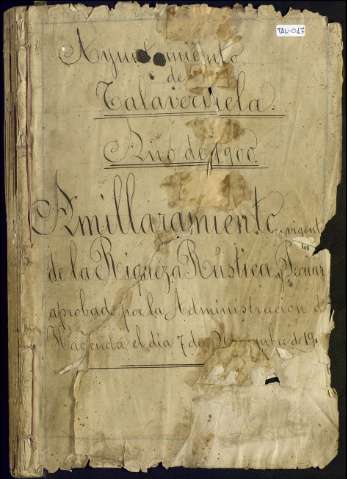 TAL-047
Ayuntamiento
de
Talaveruela.
Año de 1900.
Amillaramiento
de la Riqueza Rústica y
aprobado por la Administracion de
Hacienda el dia 7 de de 19